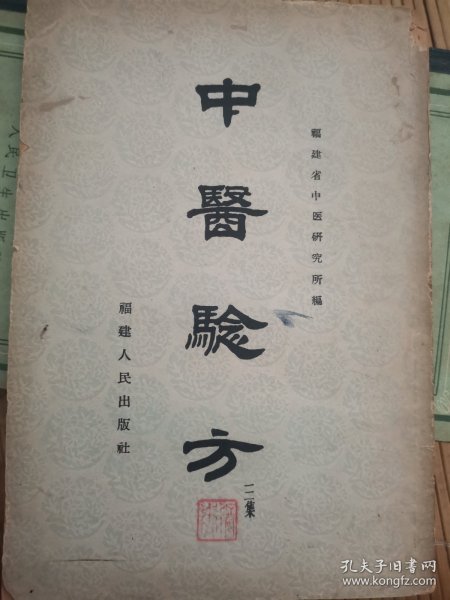 福建省中医研究所編
中醫驗方
二集
福建人民出版社
人民卫生出版
孔夫子旧书网
www.kongfz.com